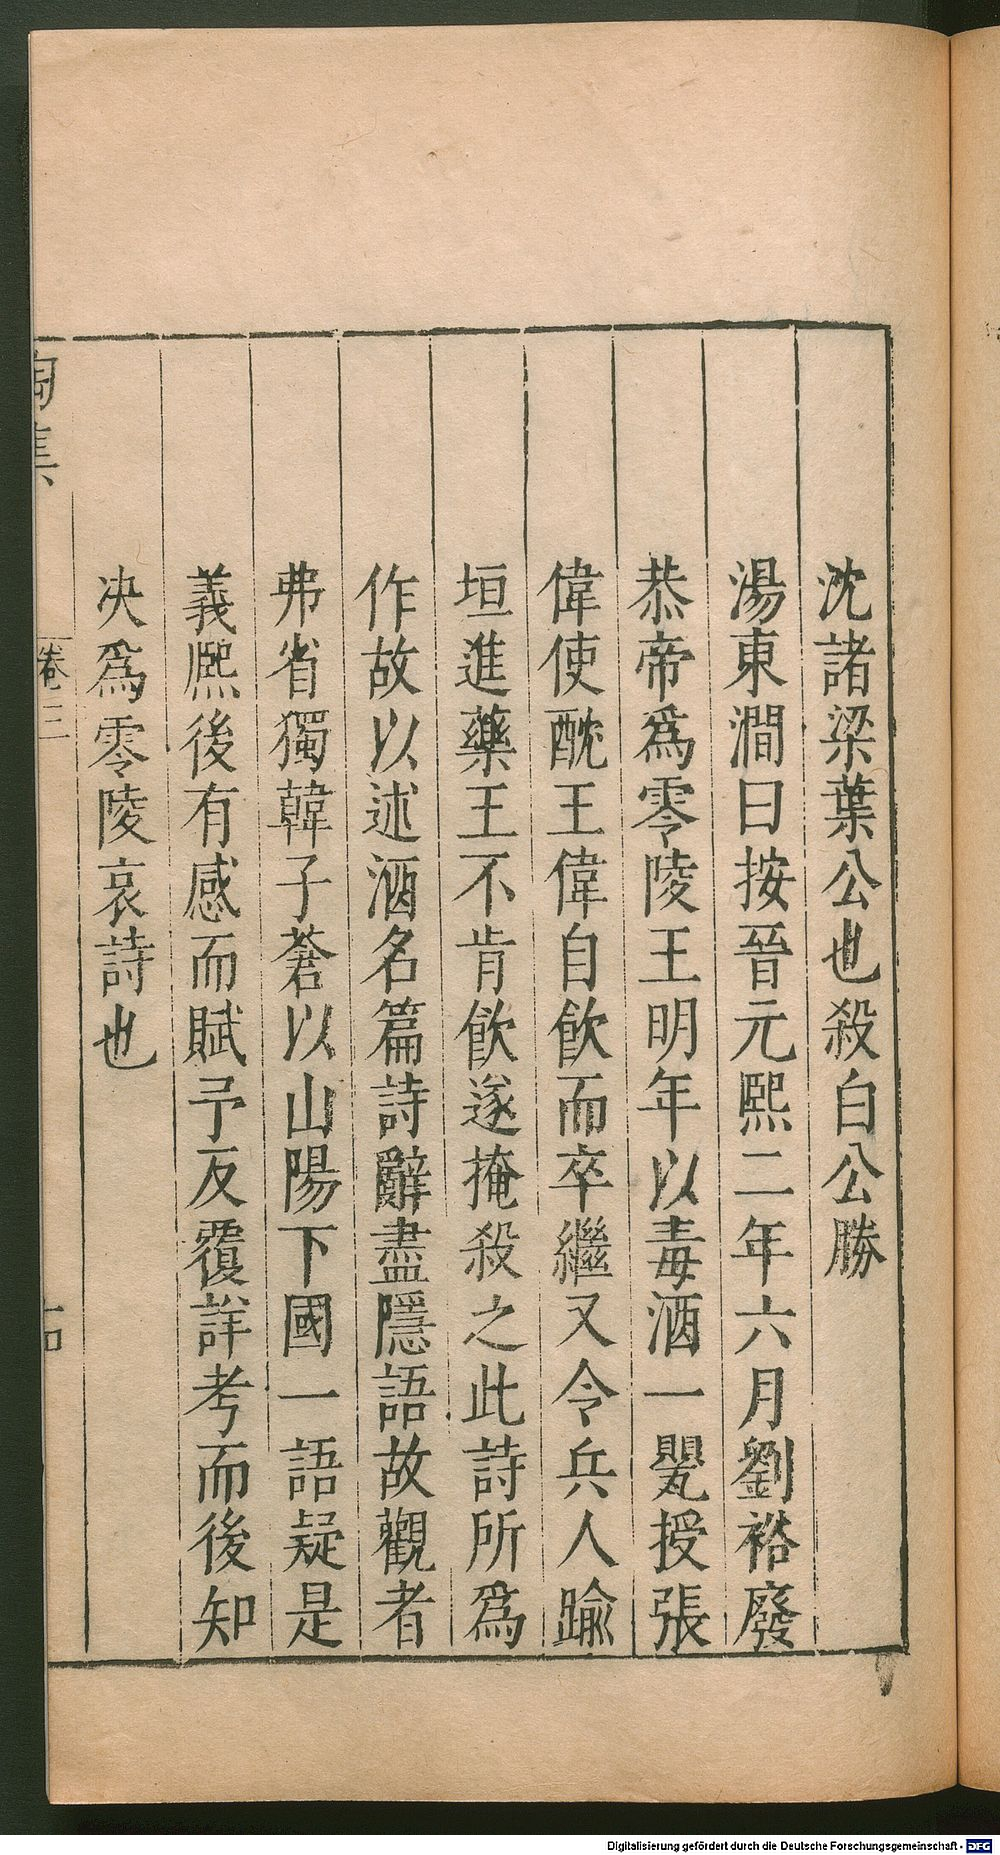 沈諸梁葉公也殺白公勝
湯東澗曰按晉元熙二年六月劉裕廢
恭帝為零陵王明年以毒酒一甖授張
偉使酖王偉自飲而卒繼又令兵人踰
垣進藥王不肯飲遂掩殺之此詩所為
作故以述酒名篇詩辭盡隱語故觀者
弗省獨韓子蒼以山陽下國一語疑是
義熈後有感而賦予反覆詳考而後知
决為零陵哀詩也
陶集
卷三
Digitalisierung gefördert durch die Deutsche Forschungsgemeinschaft - DFG